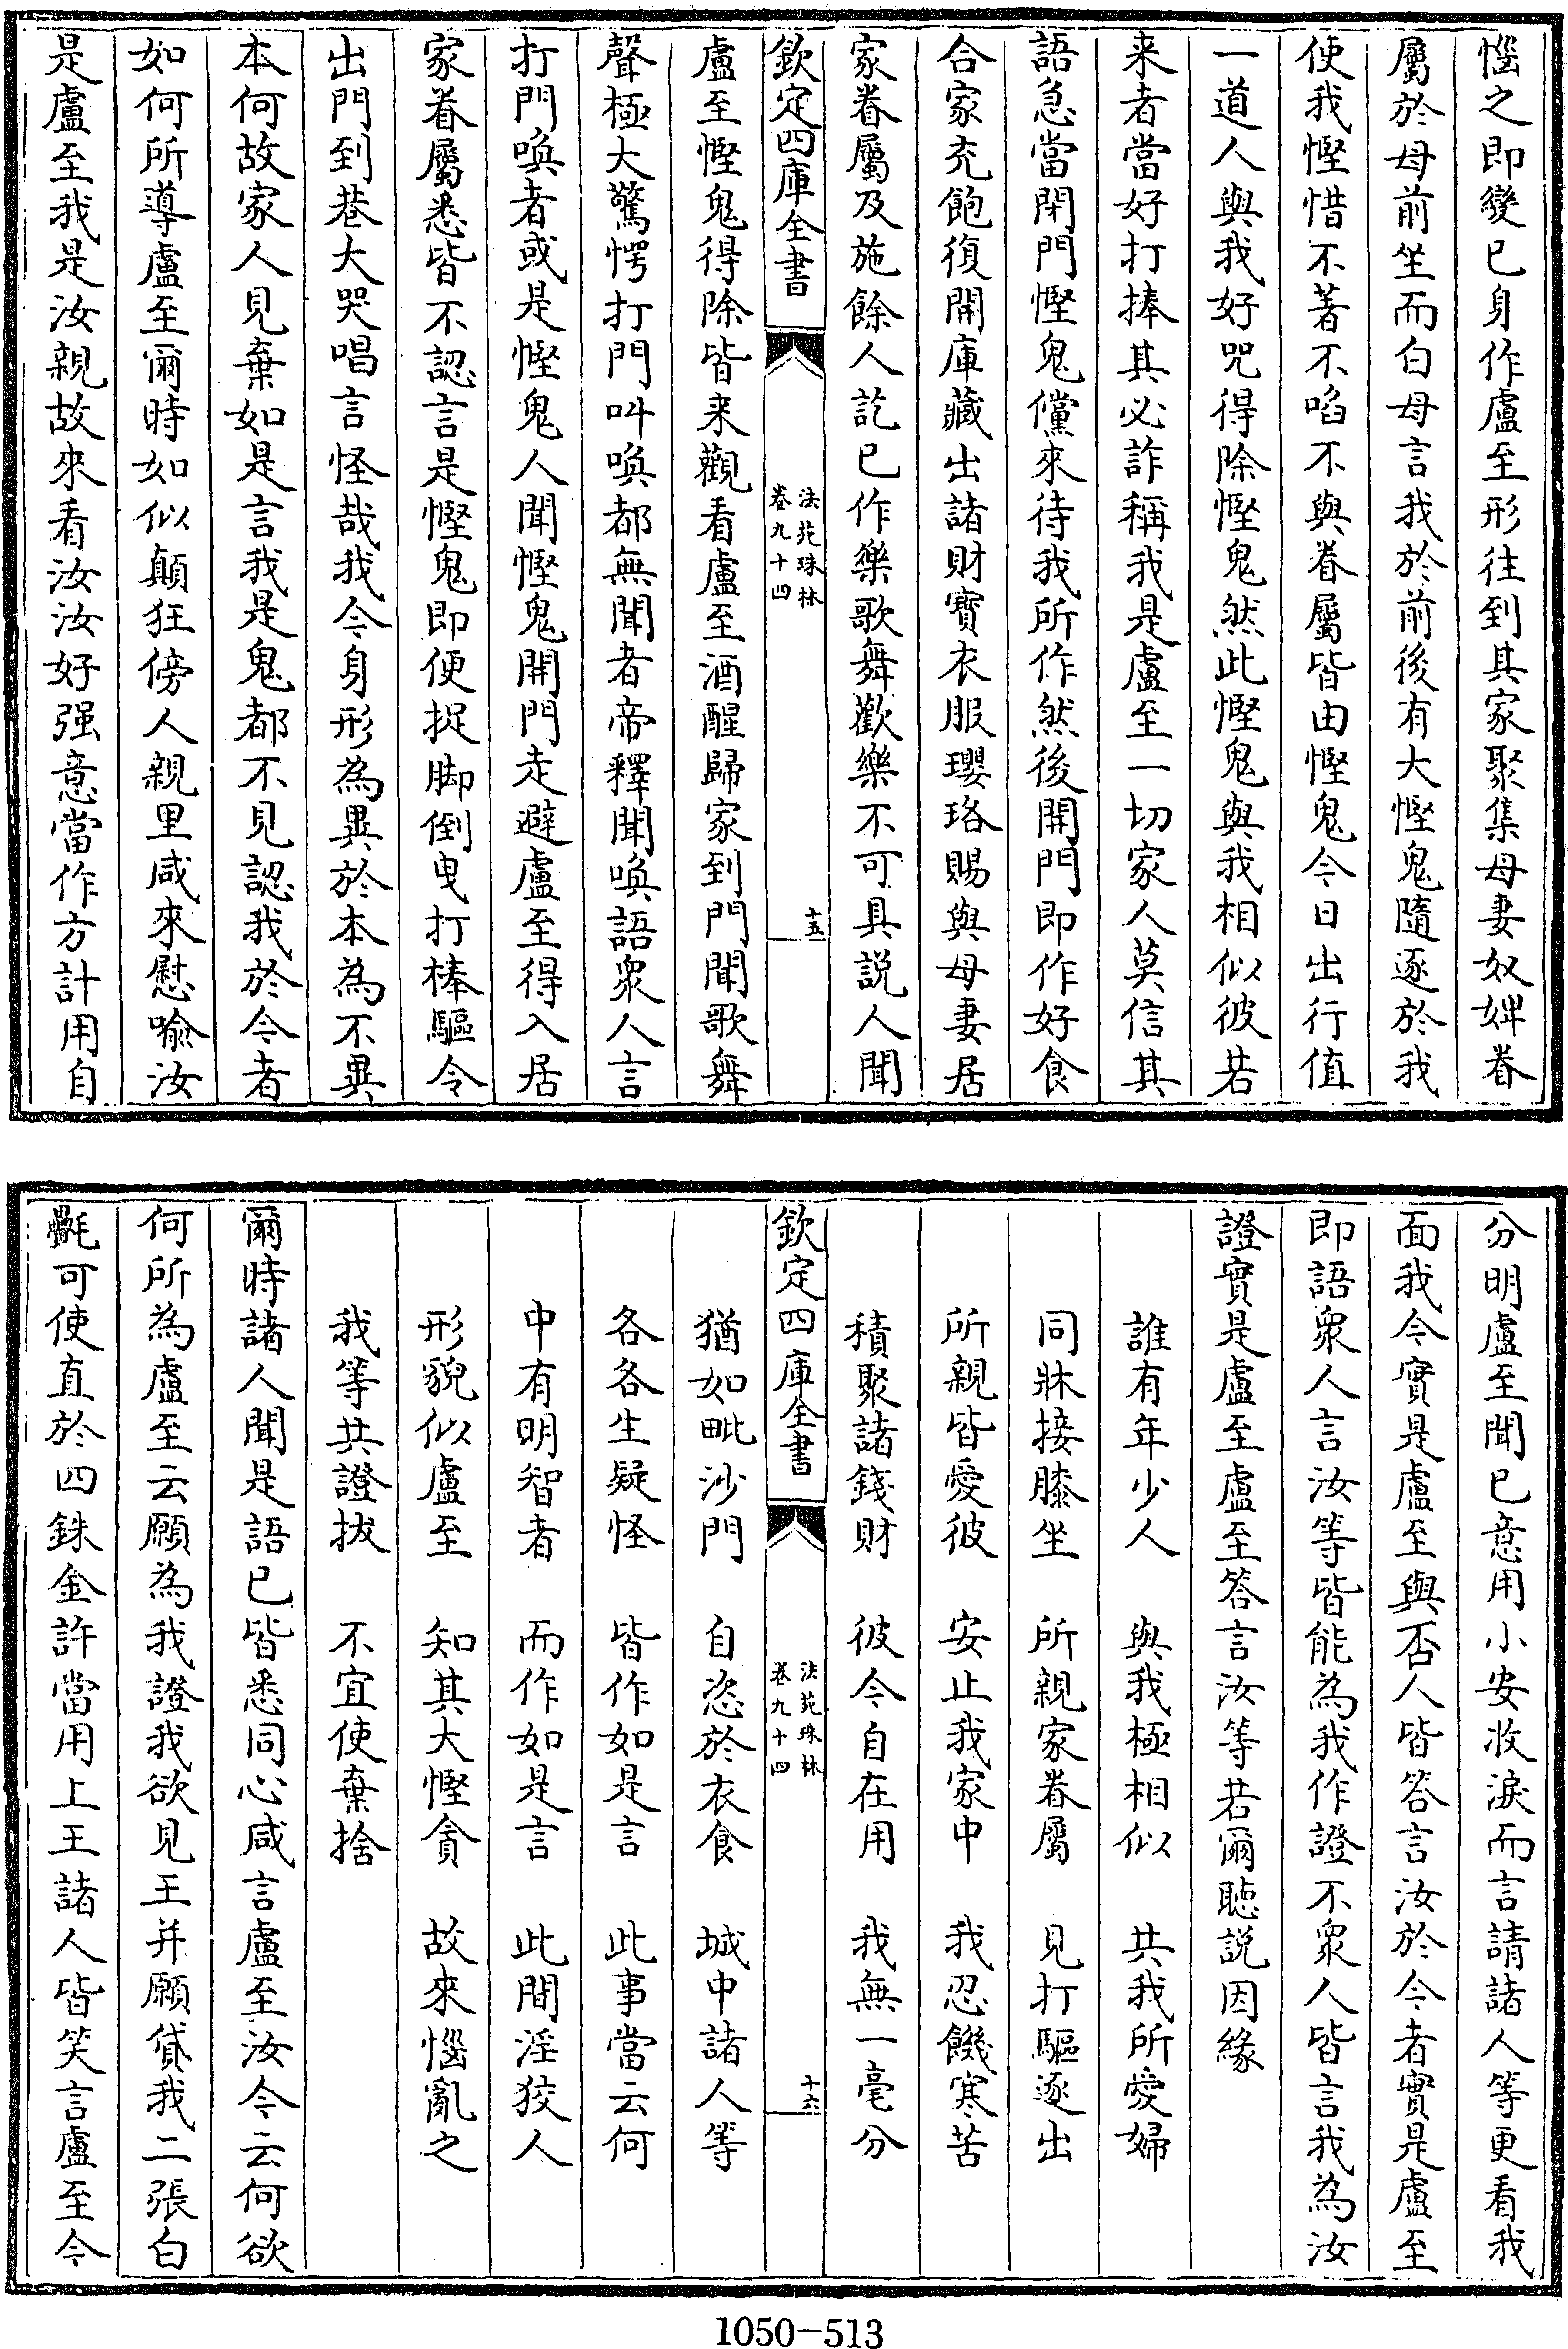 惱之即變已身作盧至形往到其家聚集母妻奴婢眷
屬於母前坐而白母言我於前後有大慳鬼隨逐於我
使我慳惜不著不啗不與眷屬皆由慳鬼今日出行值
一道人與我好咒得除慳鬼然此慳鬼與我相似彼若
来者當好打捧其必詐稱我是盧至一切家人莫信其
語急當閉門慳鬼儻來待我所作然後開門即作好食
合家充飽復開庫藏出諸財寳衣服瓔珞賜與母妻居
家眷屬及施餘人訖已作樂歌舞歡樂不可具説人聞
欽定四庫全書
法苑珠林
卷九十四
十五
盧至慳鬼得除皆来觀看盧至酒醒歸家到門聞歌舞
聲極大驚愕打門叫喚都無聞者帝釋聞喚語衆人言
打門喚者或是慳鬼人聞慳鬼開門走避盧至得入居
家眷屬悉皆不認言是慳鬼即便捉脚倒曳打棒驅令
出門到巷大哭唱言怪哉我今身形為異於本為不異
本何故家人見棄如是言我是鬼都不見認我於今者
如何所導盧至爾時如似顛狂傍人親里咸來慰喻汝
是盧至我是汝親故來看汝汝好强意當作方計用自
分明盧至聞已意用小安收淚而言請諸人等更看我
面我今實是盧至與否人皆答言汝於今者實是盧至
即語衆人言汝等皆能為我作證不衆人皆言我為汝
證實是盧至盧至答言汝等若爾聽説因緣
誰有年少人　與我極相似　共我所愛婦
同牀接膝坐　所親家眷屬　見打驅逐出
所親皆愛彼　安止我家中　我忍饑寒苦
積聚諸錢財　彼今自在用　我無一毫分
欽定四庫全書
法苑珠林
卷九十四
十六
猶如毗沙門　自恣於衣食　城中諸人等
各各生疑怪　皆作如是言　此事當云何
中有明智者　而作如是言　此間淫狡人
形貌似盧至　知其大慳貪　故來惱亂之
我等共證拔　不宜使棄捨
爾時諸人聞是語已皆悉同心咸言盧至汝今云何欲
何所為盧至云願為我證我欲見王并願貸我二張白
氎可使直於四銖金許當用上王諸人皆笑言盧至今
1050-513